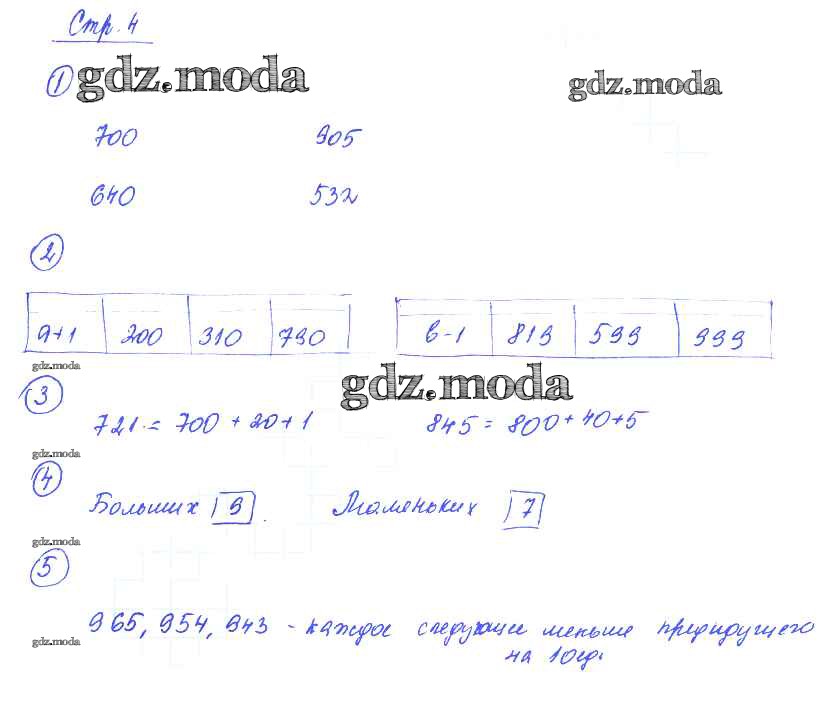 Стр. 4
1 gdz.moda
gdz.moda
700 905
640 532
2
a+1 200 310 790
в-1 819 599 999
gdz.moda
gdz.moda
3
721 = 700 + 20 + 1 845 = 800 + 40 + 5
gdz.moda
4
Больших 9. Маленьких 7
gdz.moda
5
965, 954, 943 - каждое следующее меньше предидущего
gdz.moda
на 10ед.